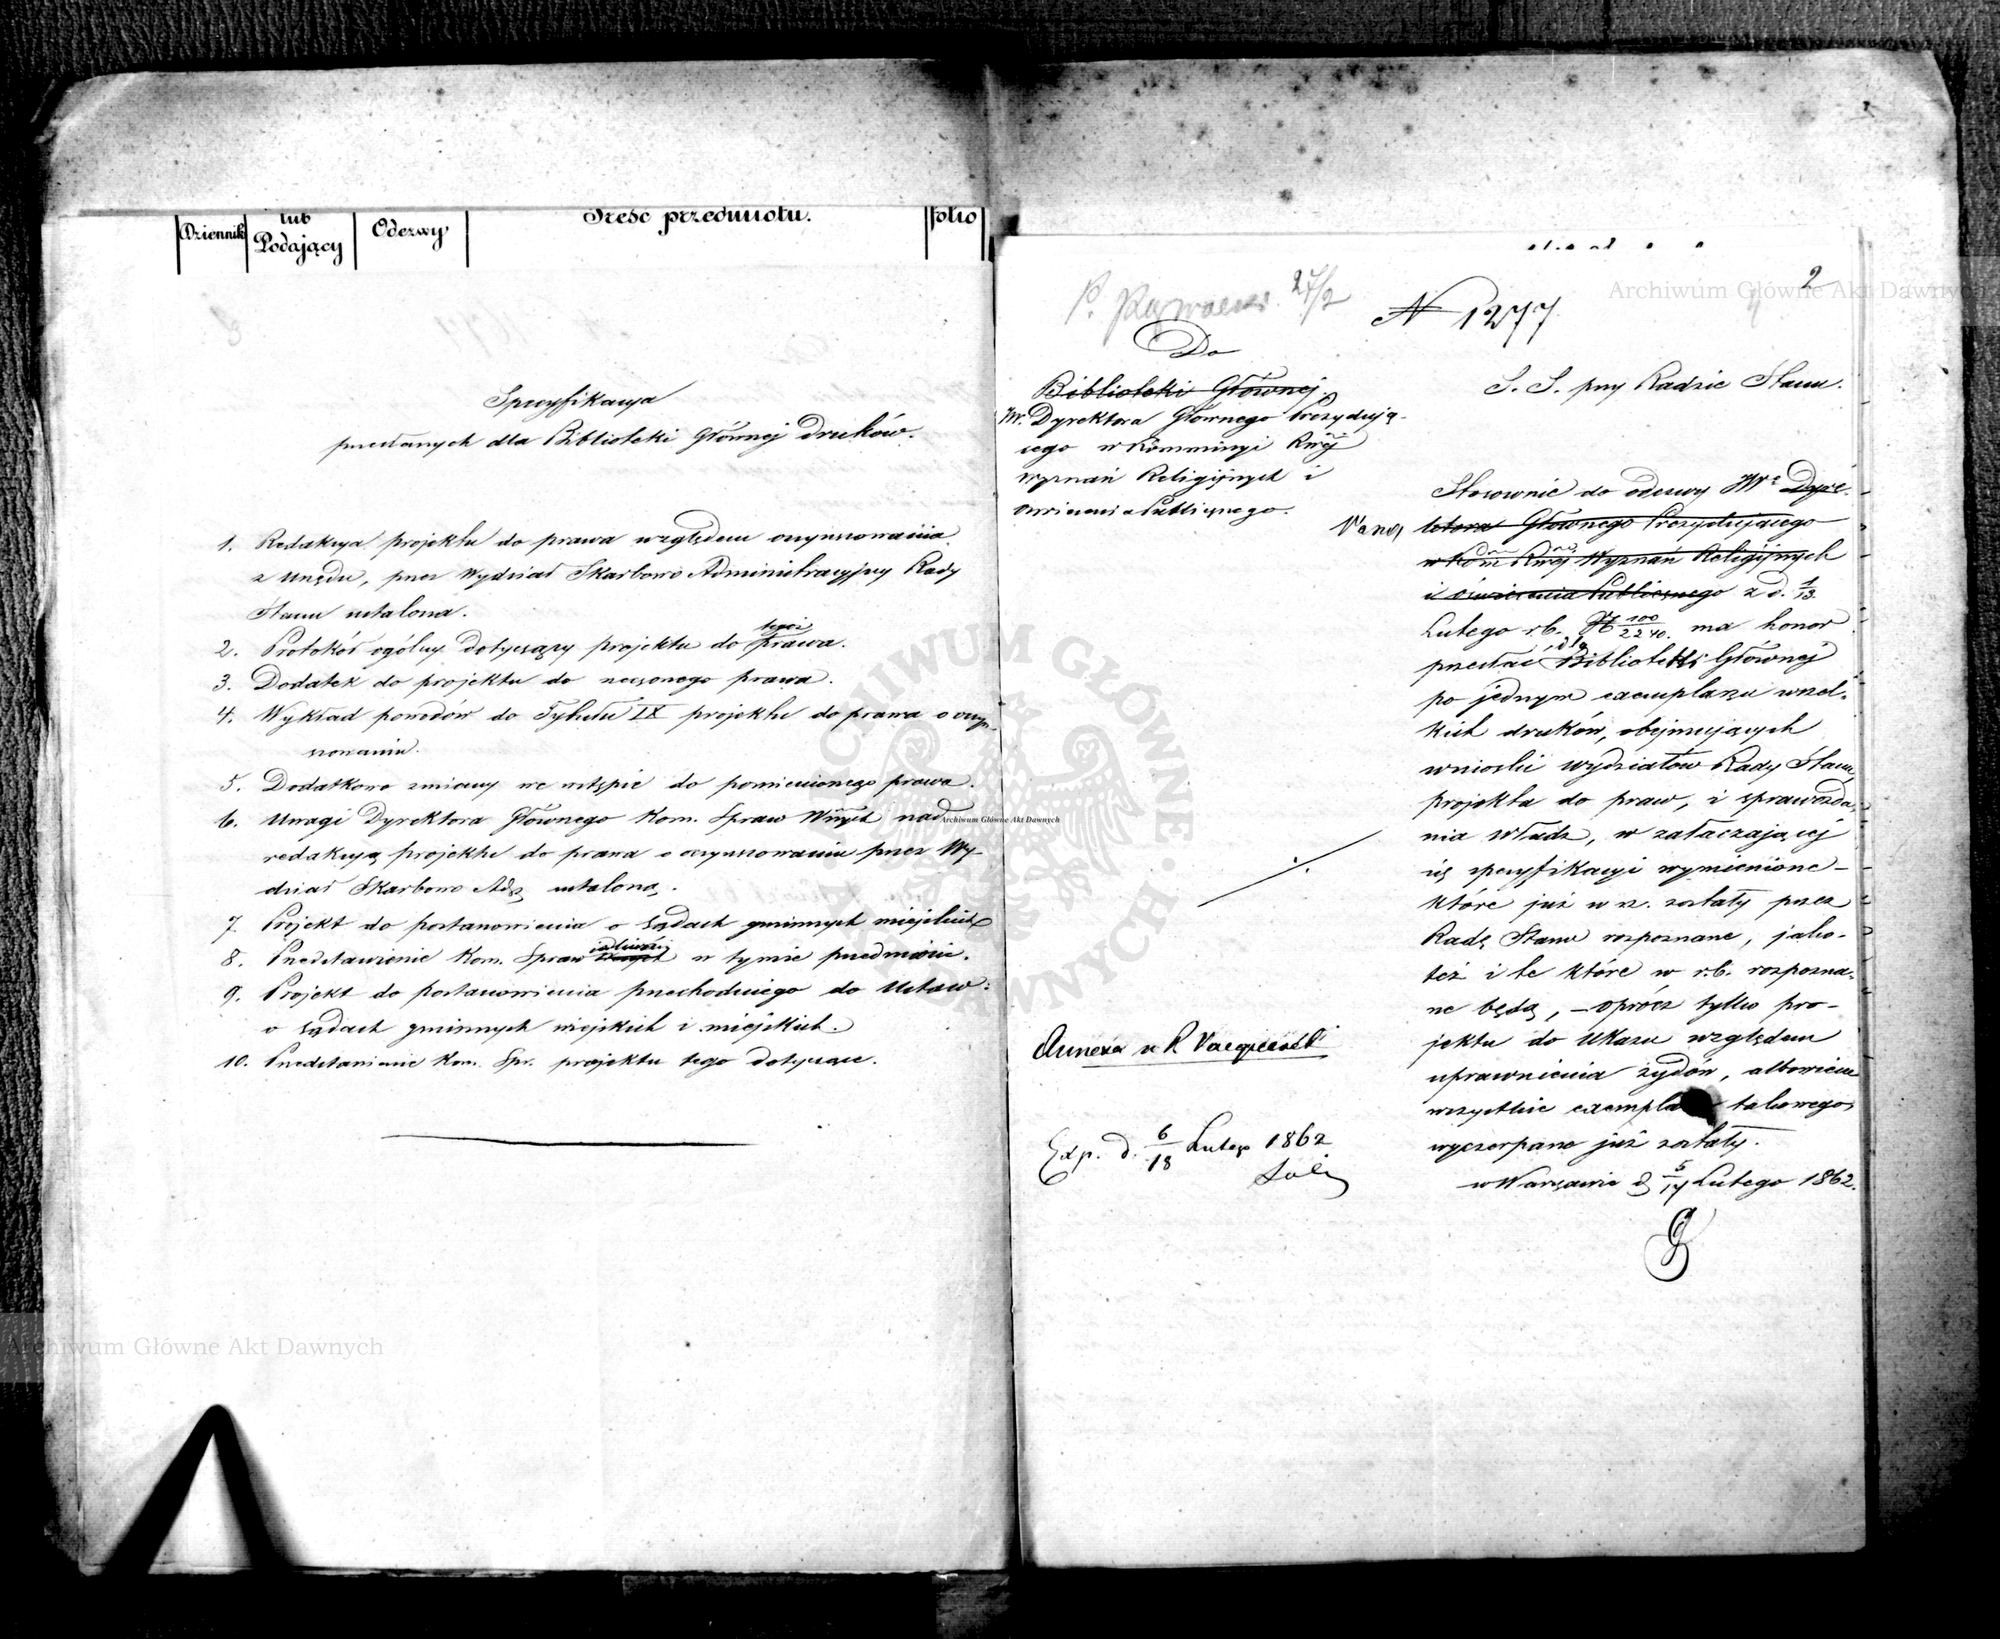 Dziennik
lub
Podający
Odezwy
Treść przedmiotu.
folio
Specyfikacya
przesłanych dla Biblioteki Głównej druków.
1. Redakcya projektu do prawa względem oczynszowania
z Urzędu, przez Wydział Skarbowo Administracyjny Rady
Stanu ustalona.
2. Protokół ogólny dotyczący projektu do tegoż prawa.
3. Dodatek do projektu do rzeczonego prawa.
4. Wykład powodów do Tytułu IX projektu do prawa o oczyn-
szowaniu.
5. Dodatkowe zmiany we wstępie do pomienionego prawa.
6. Uwagi Dyrektora Głównego Kom. Spraw Wnych nad
redakcyą projektu do prawa o oczynszowaniu przez Wy-
dział Skarbowo Adm. ustaloną.
7. Projekt do postanowienia o sądach gminnych miejskich
8. Przedstawienie Kom. Spraw w tymże przedmiocie.
9. Projekt do postanowienia przechodniego do Ustaw:
o sądach gminnych wiejskich i miejskich.
10. Przedstawienie Kom. Spr. projektu tego dotyczące.
2
P. 27/2
N 1277
Do
Biblioteki Głównej
JW. Dyrektora Głównego Prezydują-
cego w Kommissyi Rwej
Wyznań Religijnych i
Oświecenia Publicznego.
S. S. przy Radzie Stanu.
Stosownie do odezwy JWo Dyre-
ktora Głównego Prezydującego
w Kom Rwej Wyznań Religijnych
i Oświecenia Publicznego z d. 1/13
Lutego r.b. N 100/2240 ma honor
przesłać dla Biblioteki Głównej
po jednym exemplarzu wszel-
kich druków, obejmujących
wnioski wydziałów Rady Stanu,
projekta do praw, i sprawozda-
nia władz, w załączającej
się specyfikacyi wymienione –
które już w r. z. zostały przez
Radę Stanu rozpoznane, jako-
też i te które w r.b. rozpozna-
ne będą, – oprócz tylko pro-
jektu do Ukazu względem
uprawnienia żydów, albowiem
wszystkie exempla takowego
wyczerpane już zostały.
w Warszawie d 5/17 Lutego 1862.
Annexa u R
Exp. d. 6/18 Lutego 1862
Archiwum Główne Akt Dawnych
Archiwum Główne Akt Dawnych
Archiwum Główne Akt Dawnych
ARCHIWUM GŁÓWNE AKT DAWNYCH